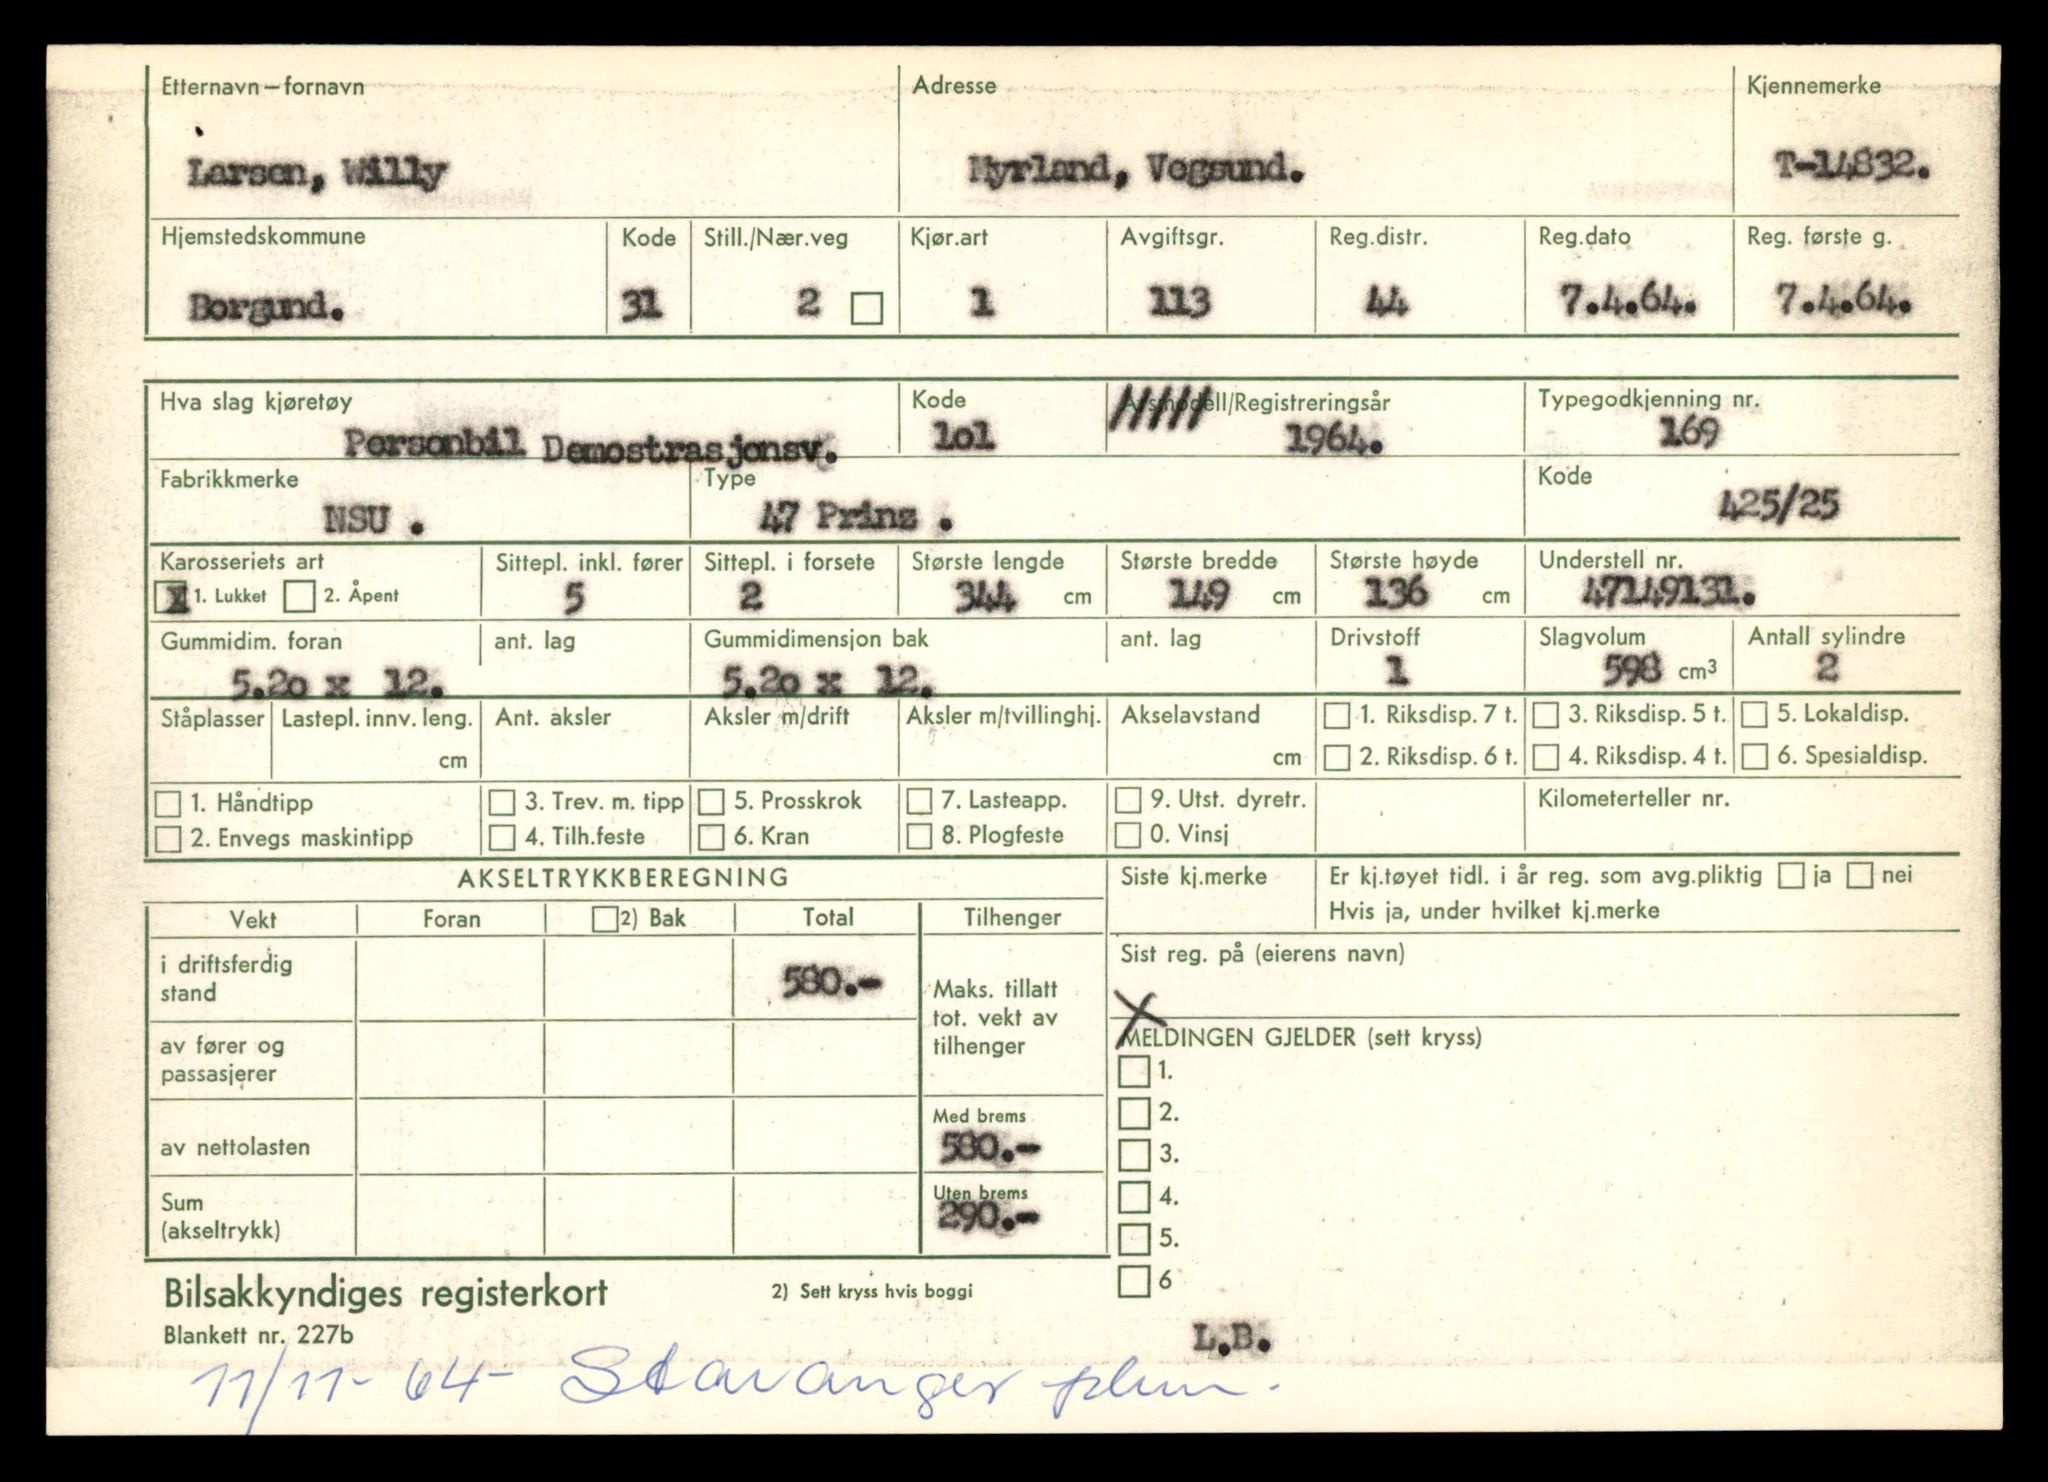 Etternavn—fornavn Adresse Kjennemerke
Larsen, Willy Myrland, Vegsund. T-14832.
Hjemstedskommune Kode Still./Nær.veg Kjør.art Avgiftsgr. Reg.distr. Reg.dato Reg. første g.
Borgund. 31 2 1 113 44 7.4.64. 7.4.64.
Hva slag kjøretøy Kode Årsmodell/Registreringsår Typegodkjenning nr.
Personbil Demostrasjonsv. lol 1964. 169
Fabrikkmerke Type Kode
NSU . 47 Prinz . 425/25
Karosseriets art Sittepl. inkl. fører Sittepl. i forsete Største lengde Største bredde Største høyde Understell nr.
X 1. Lukket 2. Åpent 5 2 344 cm 149 cm 136 cm 47149131.
Gummidim. foran ant. lag Gummidimensjon bak ant. lag Drivstoff Slagvolum Antall sylindre
5.2o x 12. 5.2o x 12. 1 598 cm³ 2
Ståplasser Lastepl. innv. leng. Ant. aksler Aksler m/drift Aksler m/tvillinghj. Akselavstand 1. Riksdisp. 7 t. 3. Riksdisp. 5 t. 5. Lokaldisp.
cm cm 2. Riksdisp. 6 t. 4. Riksdisp. 4 t. 6. Spesialdisp.
1. Håndtipp 3. Trev. m. tipp 5. Prosskrok 7. Lasteapp. 9. Utst. dyretr. Kilometerteller nr.
2. Envegs maskintipp 4. Tilh.feste 6. Kran 8. Plogfeste 0. Vinsj
AKSELTRYKKBEREGNING Siste kj.merke Er kj.tøyet tidl. i år reg. som avg.pliktig ja nei
Hvis ja, under hvilket kj.merke
Vekt Foran 2) Bak Total Tilhenger
Sist reg. på (eierens navn)
i driftsferdig
stand 580.-
Maks. tillatt
tot. vekt av
tilhenger
X
MELDINGEN GJELDER (sett kryss)
av fører og
passasjerer
1.
2.
3.
4.
5.
6
Med brems
av nettolasten 580.-
Uten brems
Sum
(akseltrykk) 290.-
Bilsakkyndiges registerkort 2) Sett kryss hvis boggi
Blankett nr. 227b
L.B.
11/11- 64- Stavanger